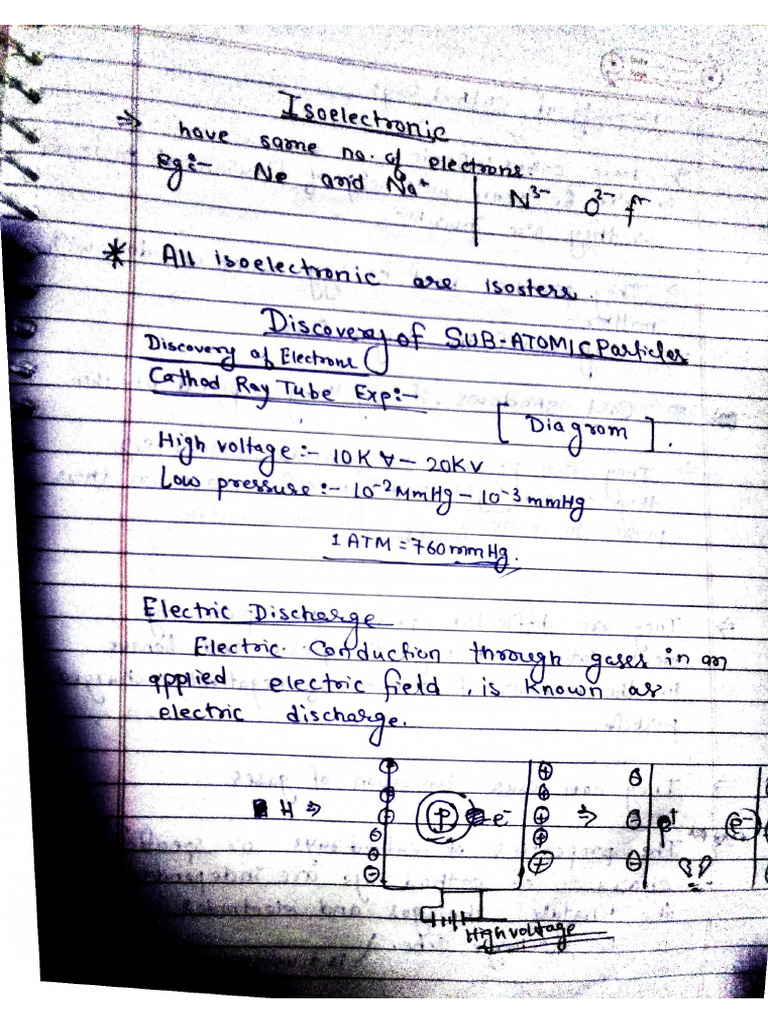 Isoelectronic
⇒ have same no. of electrons.
Eg:- Ne and Na⁺ | N³⁻ O²⁻ f⁻
* All isoelectronic are isosters.
Discovery of SUB-ATOMIC Particles
Discovery of Electrons
Cathod Ray Tube Exp:-
[Diagrom].
High voltage:- 10KV - 20KV
Low pressure:- 10⁻² MmHg - 10⁻³ mmHg
1 ATM = 760mmHg.
Electric Discharge
Electric Conduction through gases in an
applied electric field, is known as
electric discharge.
H ⇒ P e⁻ ⇒ e⁻
High voltage